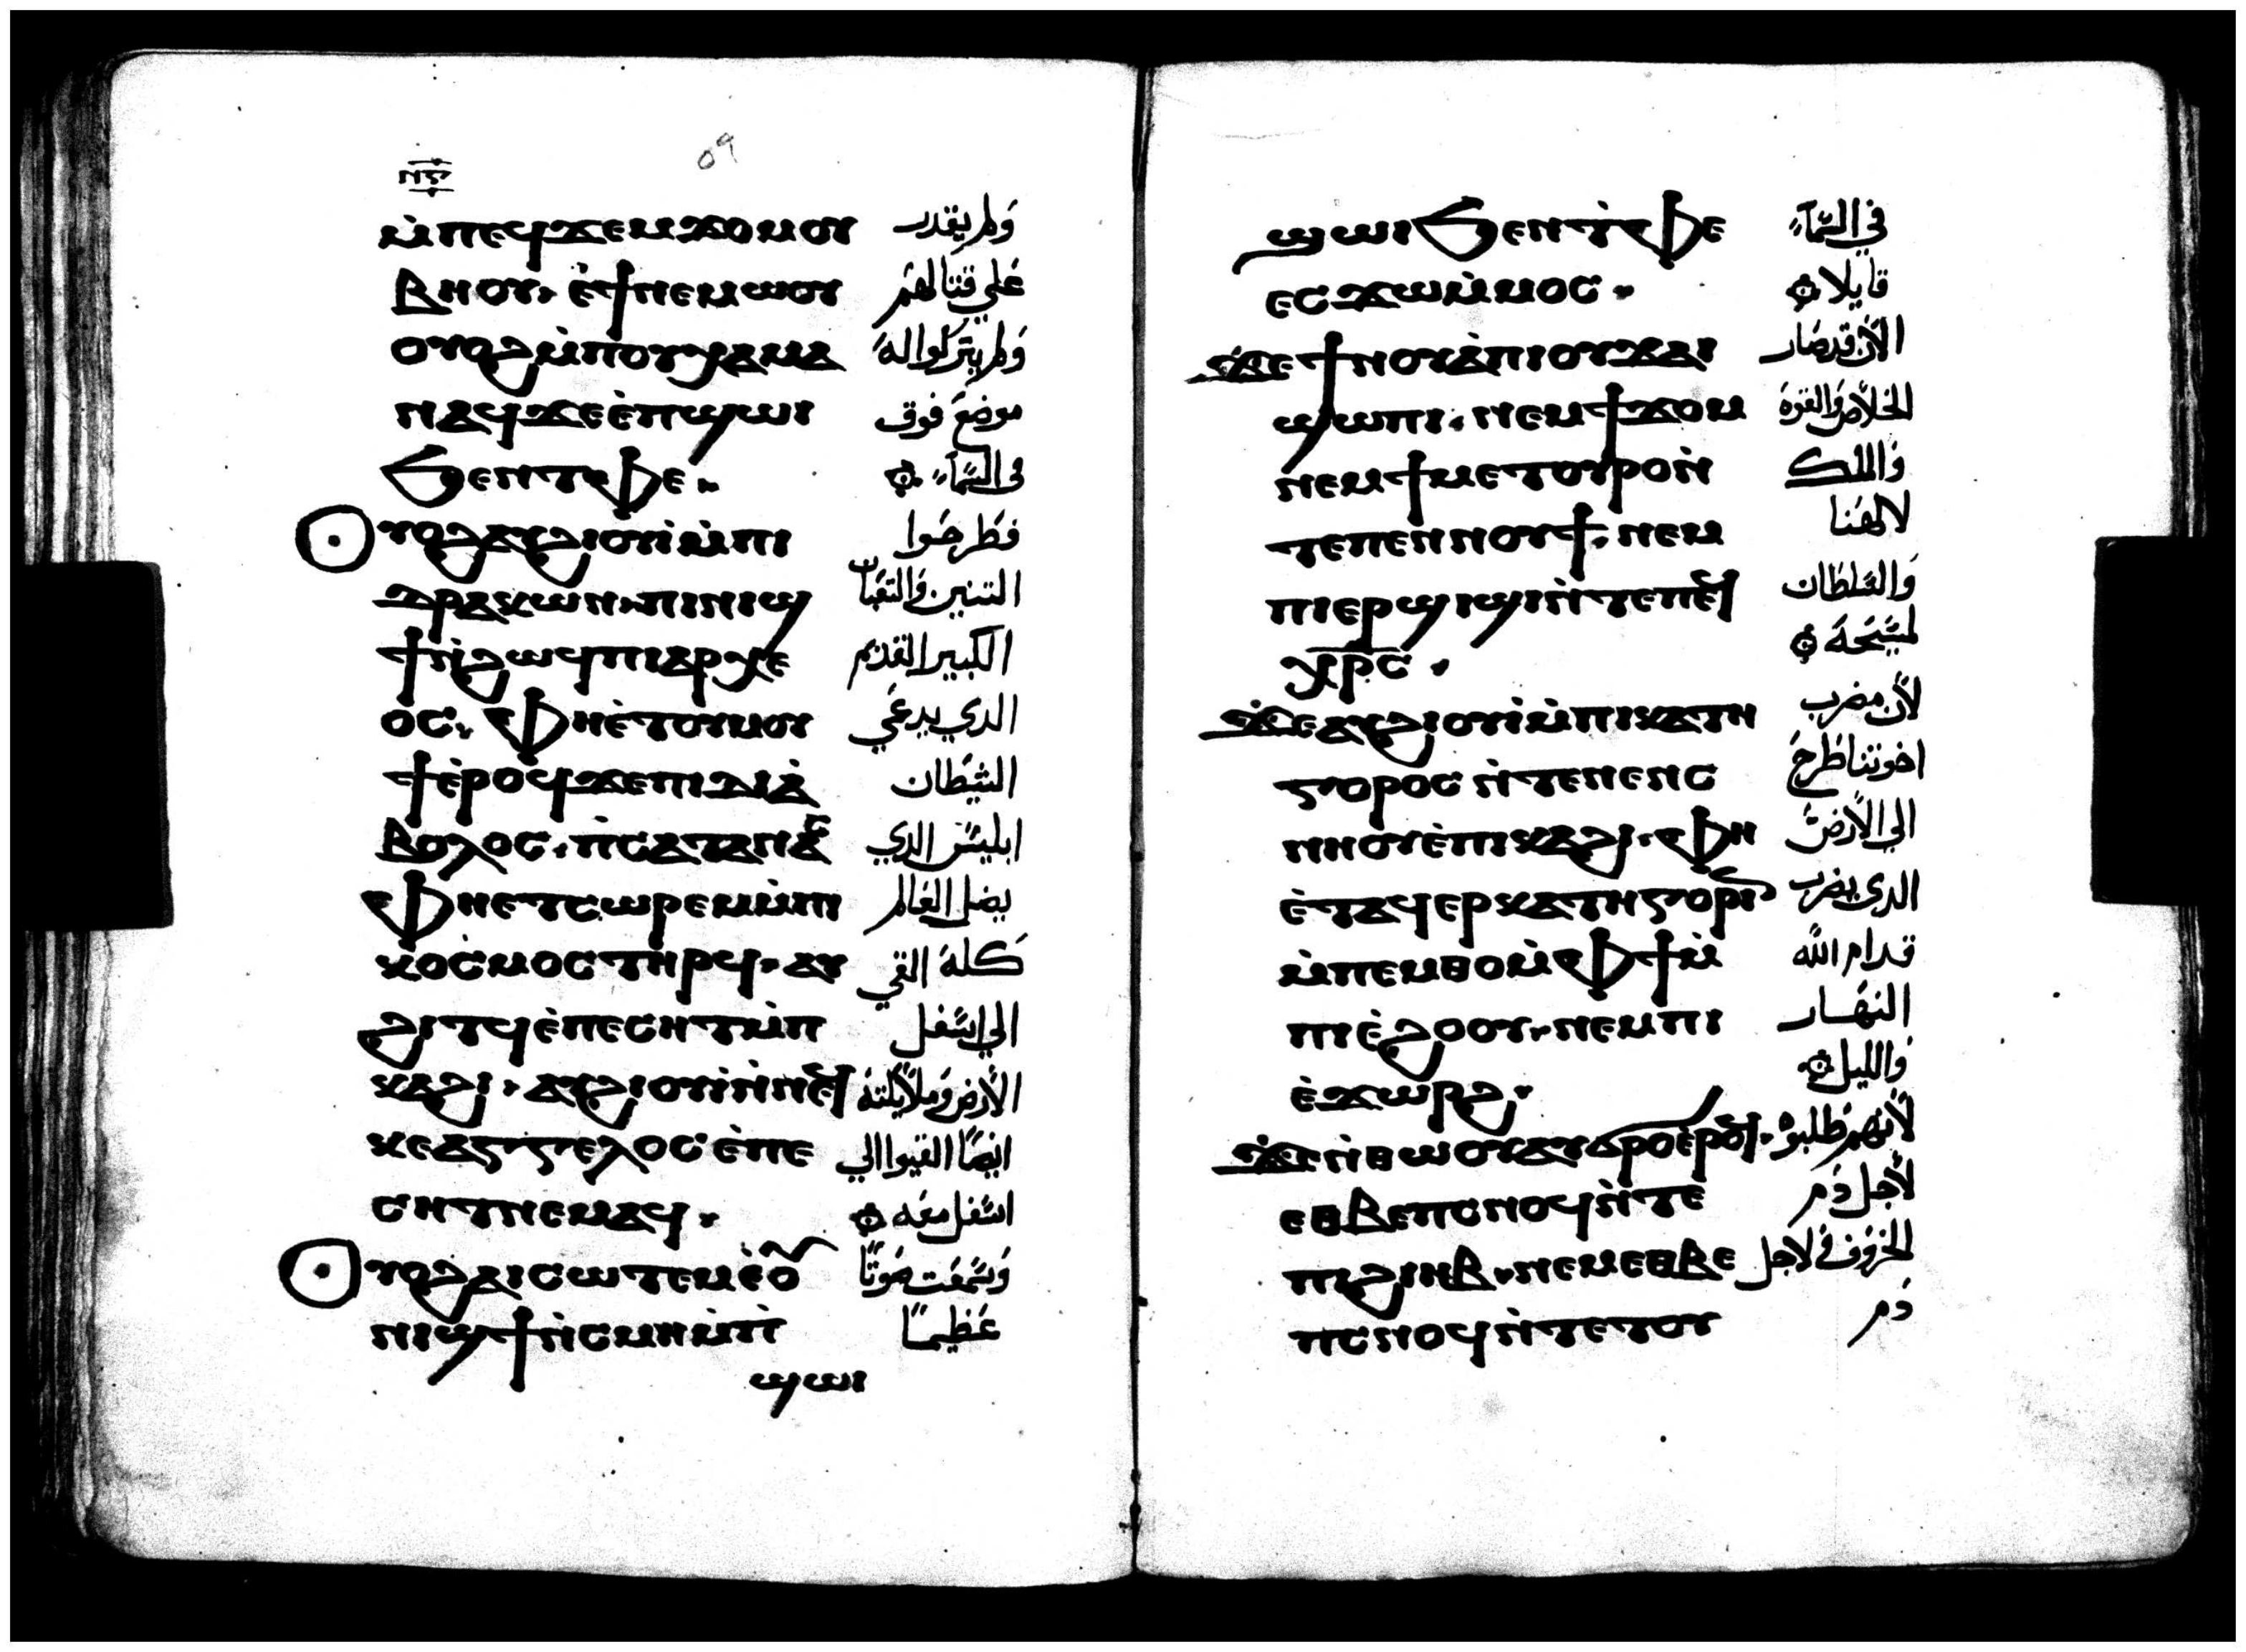 ⲛⲋ
٥٩
ⲙ̀ⲡⲉϥϫⲉⲙϫⲟⲙⲟⲩ ولم يقدر
ⲃⲏⲟⲩ· ⲉ̀ϯⲛⲉⲙⲱⲟⲩ علي قتالهم
ⲟⲩⲟϩⲙ̀ⲡⲟⲩⲭⲁⲙⲁ ولم يتركوا له
ⲛⲁϥϫⲉⲉ̀ⲡϣⲱⲓ موضع فوق
ϧⲉⲛⲧⲫⲉ· في السماء
ⲩⲟϩⲁⲩϩⲓⲟⲩⲓ̀ⲙ̀ⲡⲓ فطرحوا
ⲇⲣⲁⲕⲱⲛ·ⲡⲓⲛⲓϣ التنين والتعبان
ϯⲛ̀ϩⲱϥⲡⲓⲁⲣⲭⲉ الكبير القديم
ⲟⲥ· ⲫⲏⲉ̀ⲧⲟⲩⲙⲟⲩ الدي يدعي
ϯⲉ̀ⲣⲟϥϫⲉⲡⲓⲇⲓⲁ̀ الشيطان
ⲃⲟⲗⲟⲥ·ⲡ̀ⲥⲁⲧⲁⲛⲁⲥ ابليس الدي
ⲫⲏⲉⲧⲥⲱⲣⲉⲙⲙ̀ⲡⲓ يضل العالم
ⲕⲟⲥⲙⲟⲥⲧⲏⲣϥ·ⲁⲩ كله القي
ϩⲓⲧϥⲉ̀ⲡⲉⲥⲏⲧⲙ̀ⲡ الي اسفل
ⲕⲁϩⲓ· ⲁⲩϩⲓⲟⲩⲓ̀ⲛ̀ⲛⲉϥ الأرض وملايكته
ⲕⲉⲁⲅⲅⲉⲗⲟⲥⲉ̀ⲡⲉ ايضا القيوا الي
ⲥⲏⲧⲛⲉⲙⲁϥ· اسفل معه
ⲩⲟϩⲁⲓⲥⲱⲧⲉⲙⲉ̀ⲟⲩ وسمعت صوتا
ⲛⲓϣϯⲛ̀ⲥⲙⲏⲙ̀ⲡ̀ عظيما
ϣⲱⲓ
ϣⲱⲓϧⲉⲛⲧ̀ⲫⲉ في السماء
ⲉⲥϫⲱⲙ̀ⲙⲟⲥ· قايلا
ϫⲉϯⲛⲟⲩⲁ̀ⲡⲓⲟⲩϫⲁⲓ الأن قد صار
ϣⲱⲡⲓ·ⲛⲉⲙϯϫⲟⲙ الخلاص والقوة
ⲛⲉⲙϯⲙⲉⲧⲟⲩⲣⲟⲛ̀ والملك
ⲧⲉⲡⲉⲛⲛⲟⲩϯ·ⲛⲉⲙ لالهنا
ⲡⲓⲉⲣϣⲓϣⲓⲛ̀ⲧⲉⲡⲉϥ والسلطان
ⲭⲣⲥ· لمسيحه
ϫⲉⲁⲩϩⲓⲟⲩⲓ̀ⲙ̀ⲡⲓⲕⲁⲧⲏ لأن مضرب
ⲅⲟⲣⲟⲥⲛ̀ⲧⲉⲛⲉⲛⲥ اخوتنا طرح
ⲛⲏⲟⲩⲉ̀ⲡⲓⲕⲁϩⲓ·ⲫⲏ الي الأرض
ⲉ̀ⲧⲁϥⲉⲣⲕⲁⲧⲏⲅⲟⲣⲓⲛ الدي يضرب
ⲙ̀ⲡⲉⲙⲑⲟⲙ̀ⲫϯⲙ̀ قدام الله
ⲡⲓⲉ̀ϩⲟⲟⲩ·ⲛⲉⲙⲡⲓ النهار
ⲉ̀ϫⲱⲣϩ· والليل
ϫⲉⲛ̀ⲑⲱⲟⲩⲁⲩϭⲣⲟⲉ̀ⲣⲟϥ· لأنهم طلبوه
ⲉⲑⲃⲉⲡⲥⲛⲟϥⲛ̀ⲧⲉ لأجل دم
ⲡⲓϩⲓⲏⲃ·ⲛⲉⲙⲉⲑⲃⲉ الخروف في لاجل
ⲡⲥⲛⲟϥⲛ̀ⲧⲉⲧⲟⲩ دم